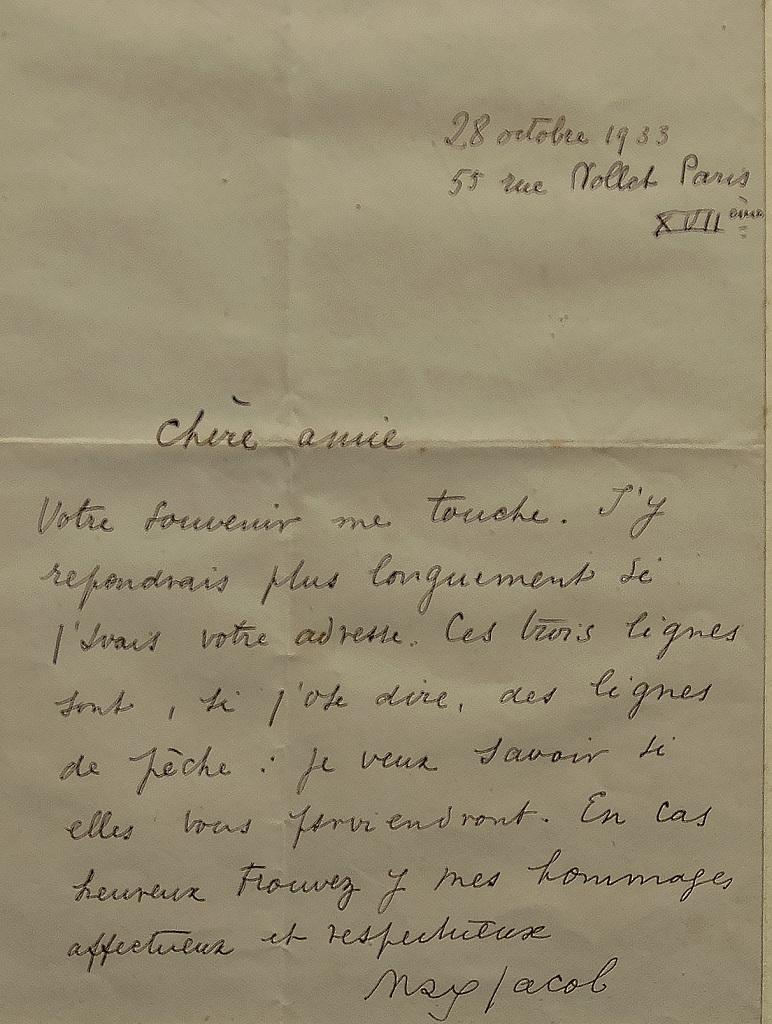 28 octobre 1933
55 rue Nollet Paris
XVII ème
Chère amie
Votre souvenir me touche. J'y
repondrais plus longuement si
j'avais votre adresse. Ces trois lignes
sont, si j'ose dire, des lignes
de pêche : je veux savoir si
elles vous parviendront. En cas
heureux trouvez y mes hommages
affectueux et respectueux
Max Jacob